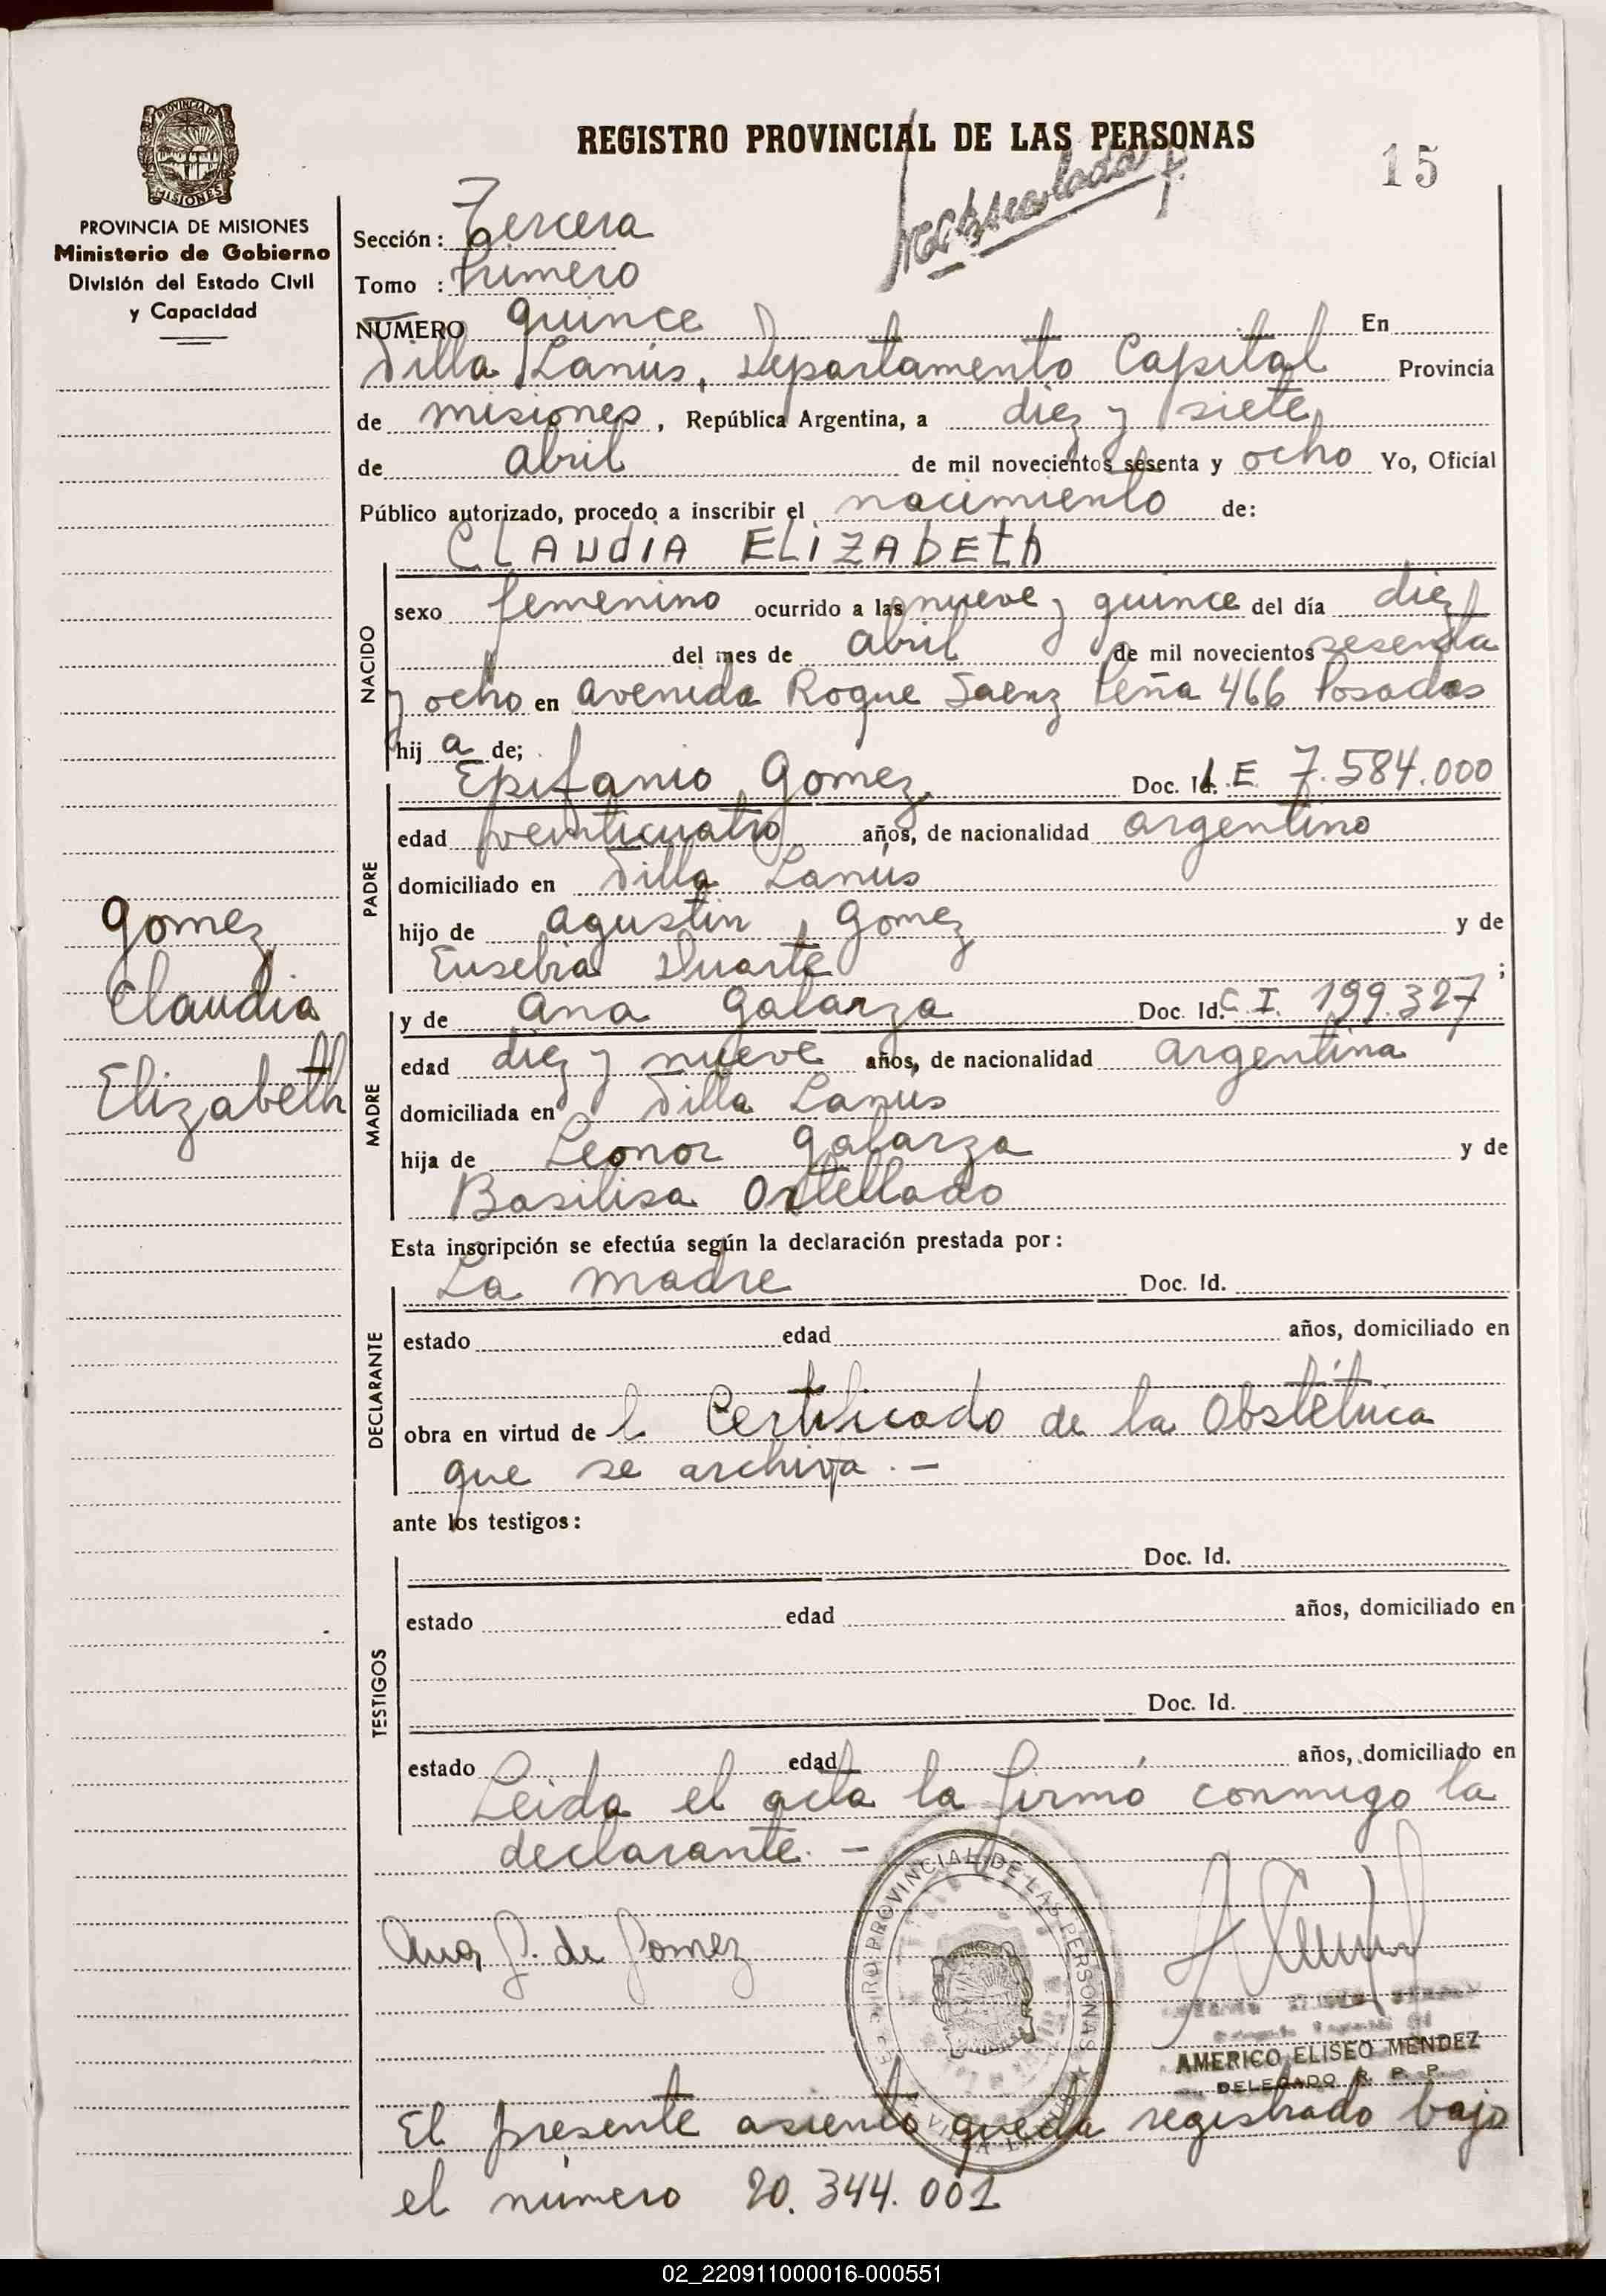 REGISTRO PROVINCIAL DE LAS PERSONAS
15
PROVINCIA DE MISIONES
Ministerio de Gobierno
División del Estado Civil
y Capacidad
Sección: Tercera
Tomo : Primero
NUMERO quince En
Villa Lanús, Departamento Capital Provincia
de misiones, República Argentina, a diez y siete
de abril de mil novecientos sesenta y ocho Yo, Oficial
Público autorizado, procedo a inscribir el nacimiento de:
CLAUdIA ELIZABETh
NACIDO
sexo femenino ocurrido a las nueve y quince del día diez
del mes de abril de mil novecientos sesenta
y ocho en avenida Roque Saenz Peña 466 Posadas
hij a de;
PADRE
Epifanio Gomez Doc. Id. L.E. 7.584.000
edad veinticuatro años, de nacionalidad argentino
domiciliado en Villa Lanús
hijo de agustin Gomez y de
Eusebia Duarte ;
Gomez
Claudia
Elizabeth
MADRE
y de ana galarza Doc. Id. C. I. 199.327
edad diez y nueve años, de nacionalidad argentina
domiciliada en Villa Lanús
hija de Leonor galarza y de
Basilisa Ortellado
Esta inscripción se efectúa según la declaración prestada por:
DECLARANTE
La madre Doc. Id.
estado edad años, domiciliado en
obra en virtud de l Certificado de la Obstétrica
que se archiva. —
ante los testigos:
TESTIGOS
Doc. Id.
estado edad años, domiciliado en
Doc. Id.
estado edad años, domiciliado en
Leida el acta la firmó conmigo la
declarante. —
Ana G. de Gomez
PROVINCIAL DE LAS PERSONAS
AMERICO ELISEO MENDEZ
DELEGADO R. P. P.
El presente asiento queda registrado bajo
el número 20.344.001
02_220911000016-000551